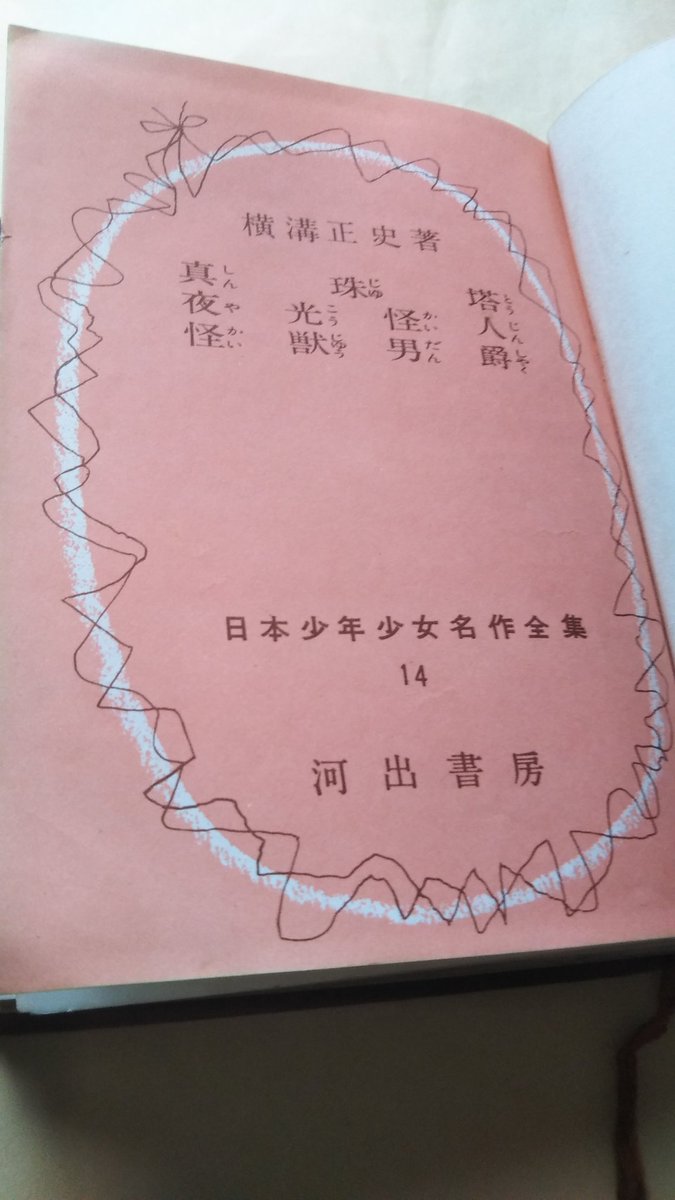 横溝正史著
真しん珠じゅ塔とう
夜や光こう怪かい人じん
怪かい獣じゅう男だん爵しゃく
日本少年少女名作全集
14
河出書房